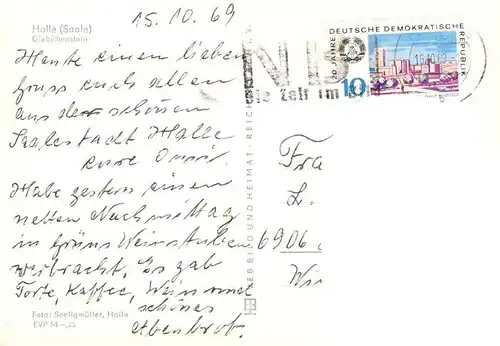 15.10.69
Halle (Saale)
Giebichenstein
Heute einen lieben
Gruss euch allen
aus der schönen
Saalestadt Halle
eure Omi.
Habe gestern einen
netten Nachmittag
in Grüns Weinstuben
verbracht, Es gab
Torte, Kaffee, Wein und
schönes
Abenbrot.
Foto: Seeligmüller, Halle
EVP M –,25
VEB BILD UND HEIMAT · REICHENBACH
DEUTSCHE DEMOKRATISCHE
REPUBLIK
20 JAHRE DDR
10
Zeit im
Fra
L.
6906
Wi